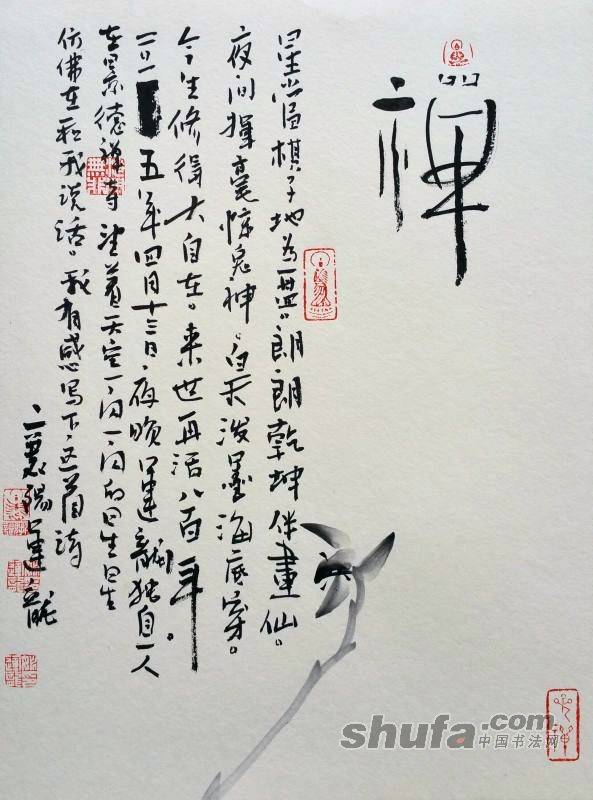 禪
星当棋子地为盘。朗朗乾坤伴畫仙。
夜间挥毫惊鬼神。白天泼墨海底穿。
今生修得大自在。来世再活八百年。
二〇一五年四月十三日，夜晚運龍独自一人
在景德禅寺望着天空一闪一闪的星星
仿佛在和我说话。我有感写下这首诗
襄陽運龍
shufa.com
中国书法网